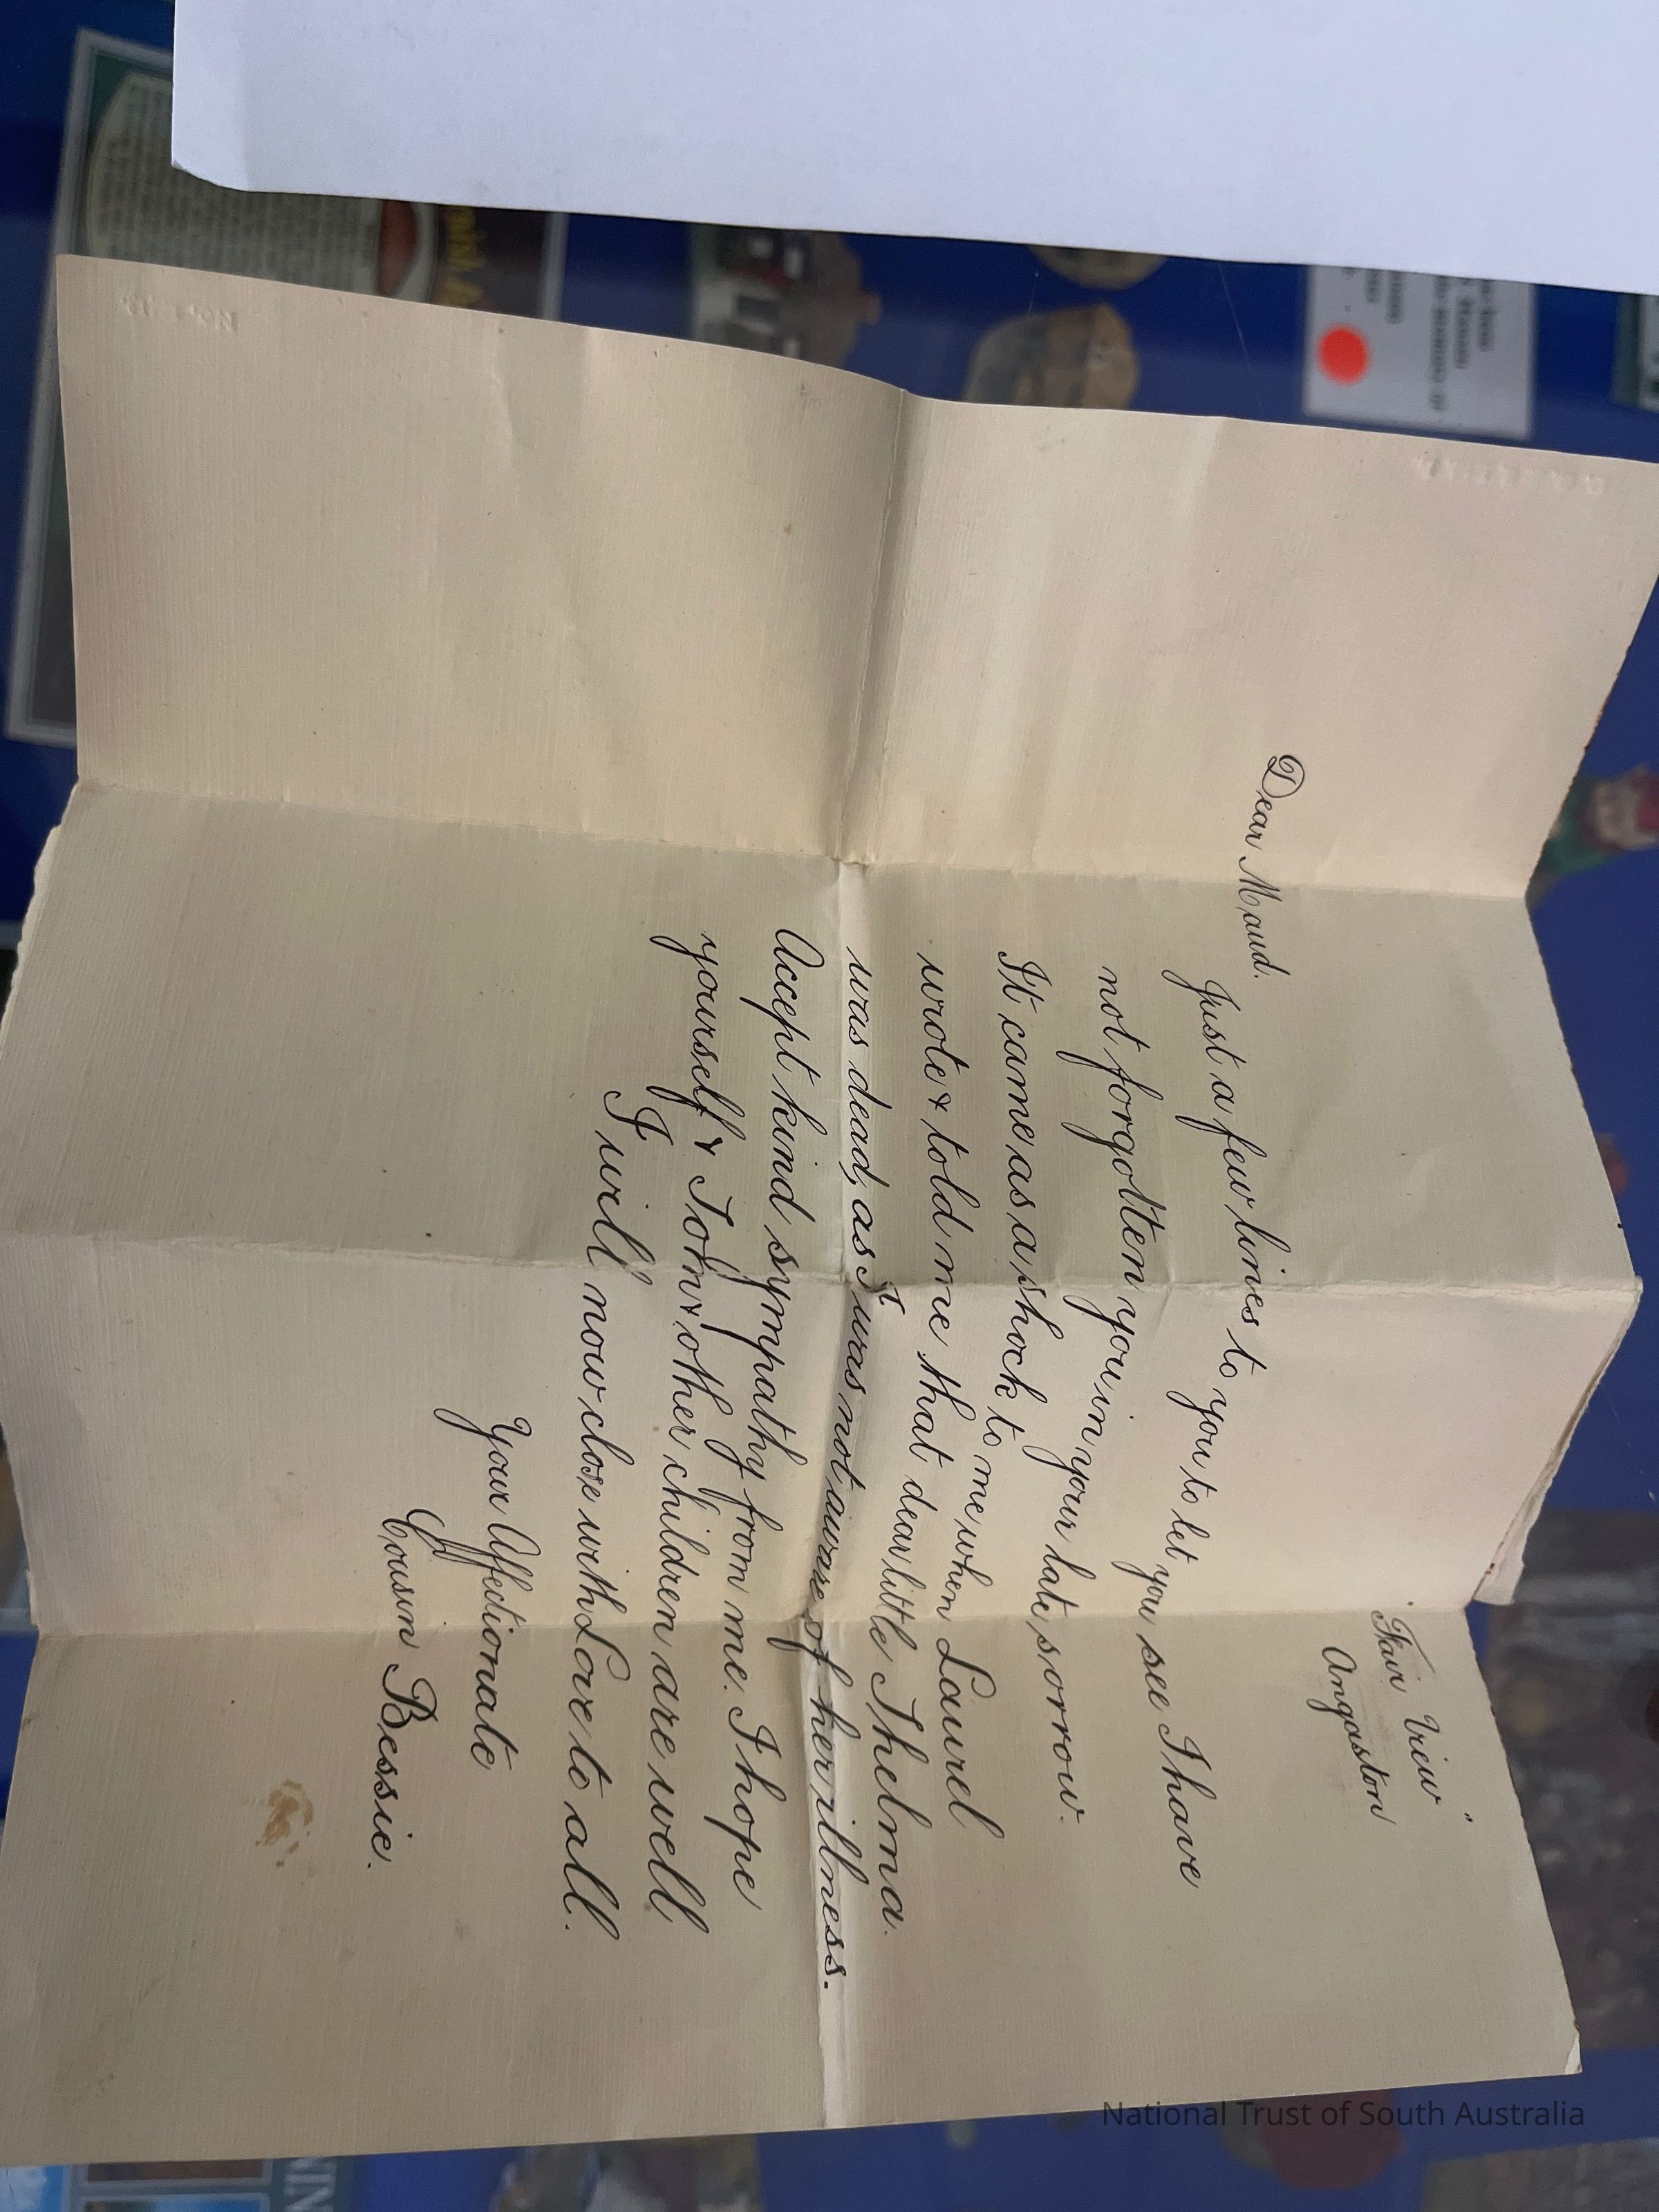 "Fair View"
Angaston
Dear Maud.
Just a few lines to you to let you see I have
not forgotten you in your late sorrow.
It came as a shock to me when Laurel
wrote & told me that dear little Thelma.
was dead, as I was not aware of her illness.
Accept kind sympathy from me. I hope
yourself & John & other children are well
I will now close with Love to all.
Your Affectionate
Cousin Bessie.
National Trust of South Australia